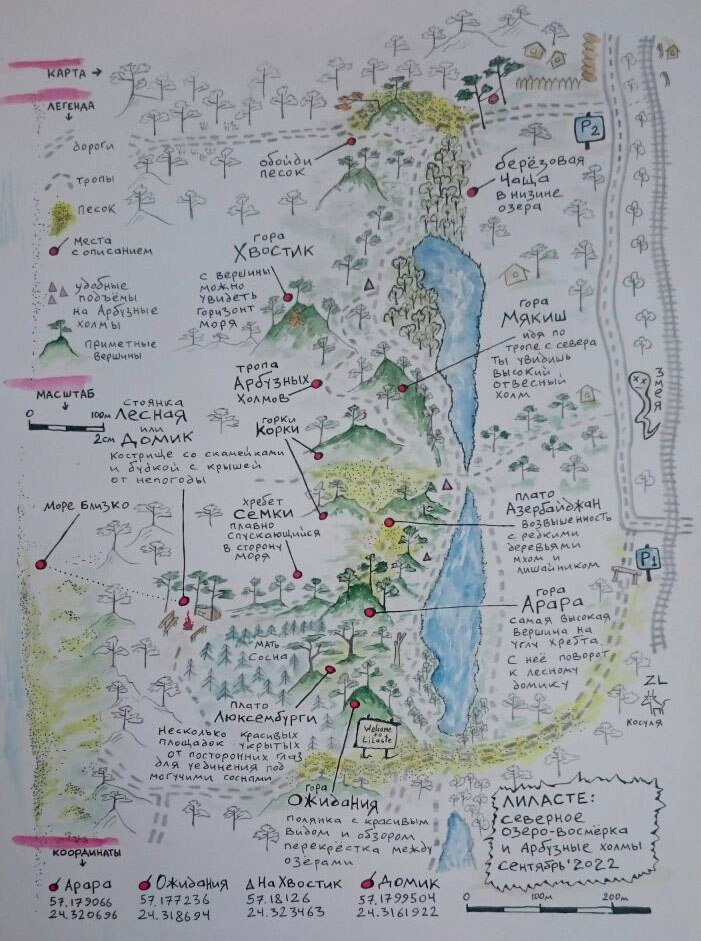 КАРТА →
ЛЕГЕНДА
дороги
тропы
песок
места
с описанием
удобные
подъёмы
на Арбузные
холмы
приметные
вершины
МАСШТАБ
0 100м
2см
обойди
песок
P2
берёзовая
чаща
в низине
озера
гора
ХВОСТИК
с вершины
можно
увидеть
горизонт
моря
гора
МЯКИШ
идя по
тропе с севера
ты увидишь
высокий
отвесный
холм
Змея
тропа
Арбузных
холмов
горки
Корки
стоянка
Лесная
или
Домик
кострище со скамейками
и будкой с крышей
от непогоды
море близко
хребет
Семки
плавно
спускающийся
в сторону
моря
плато
Азербайджан
возвышенность
с редкими
деревьями
мхом и
лишайником
P1
гора
Арара
самая высокая
вершина на
углу хребта.
С неё поворот
к лесному
домику
мать
Сосна
плато
Люксембурги
несколько красивых
площадок укрытых
от посторонних глаз
для уединения под
могучими соснами
Welcome
to
Lilaste
ZL
косуля
гора
Ожидания
полянка с красивым
видом и обзором
перекрёстка между
озёрами
ЛИЛАСТЕ:
северное
озеро-восмёрка
и Арбузные холмы
сентябрь'2022
0 100м 200м
КООРДИНАТЫ
Арара
57.179066
24.320696
Ожидания
57.177236
24.318694
На Хвостик
57.18126
24.323463
Домик
57.1799504
24.3161922